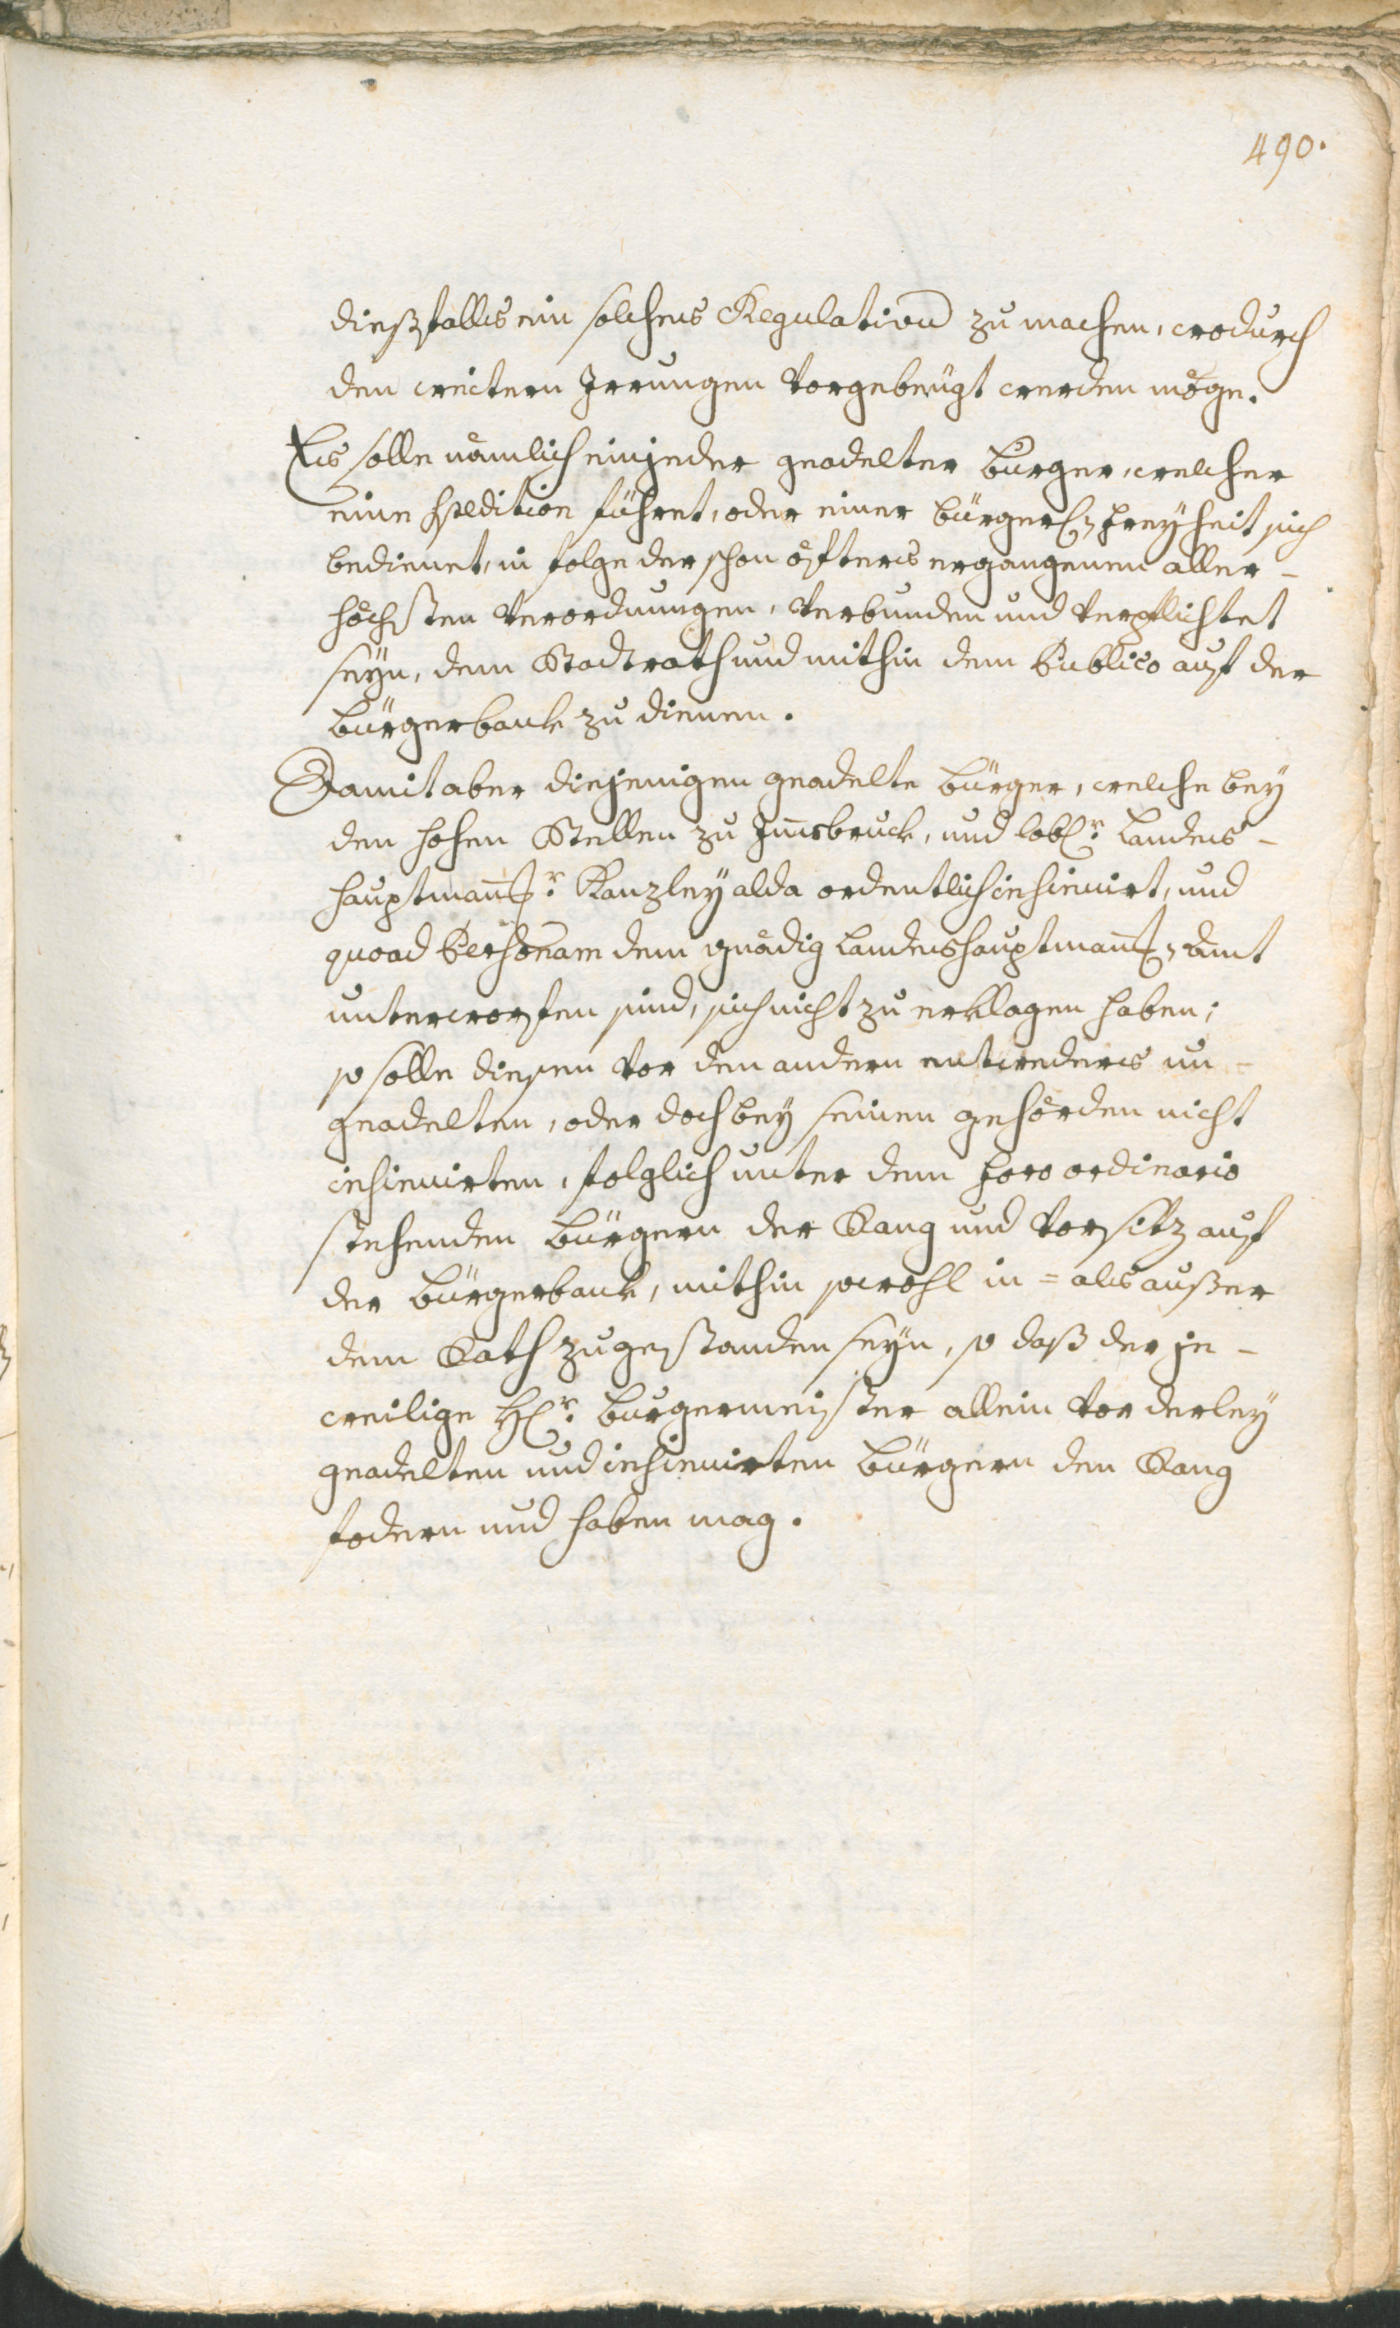 490.
dießfalls ein solches Regulativum zu machen, wodurch
den weitern Irrungen vorgebeugt werden möge.
Es solle nämlich ein jeder geadelter Burger, welcher
eine Spedition führet, oder einer bürgerl. Freyheit sich
bedienet, in folge der schon öfters ergangenen aller-
höchsten Verordnungen, verbunden und verpflichtet
seyn, dem Stadtrath und mithin dem Publico auf der
Bürgerbank zu dienen.
Damit aber diejenigen geadelte Bürger, welche bey
den hohen Stellen zu Innsbruck, und lobl.r Landes-
hauptmannsch.r Kanzley alda ordentlich insinuirt, und
quoad Personam dem gnädig Landeshauptmannsch. Amt
unterworfen sind, sich nicht zu erklagen haben;
so solle diesen vor den andern entweders un-
geadelten, oder doch bey seinen gehörden nicht
insinuirten, folglich unter dem Foro ordinario
stehenden Bürgern der Rang und Vorsitz auf
der Bürgerbank, mithin sowohl in = als außer
dem Rath zugestanden seyn, so daß der je-
weilige H.r Burgermeister allein vor derley
geadelten und insinuirten Bürgern den Rang
fodern und haben mag.